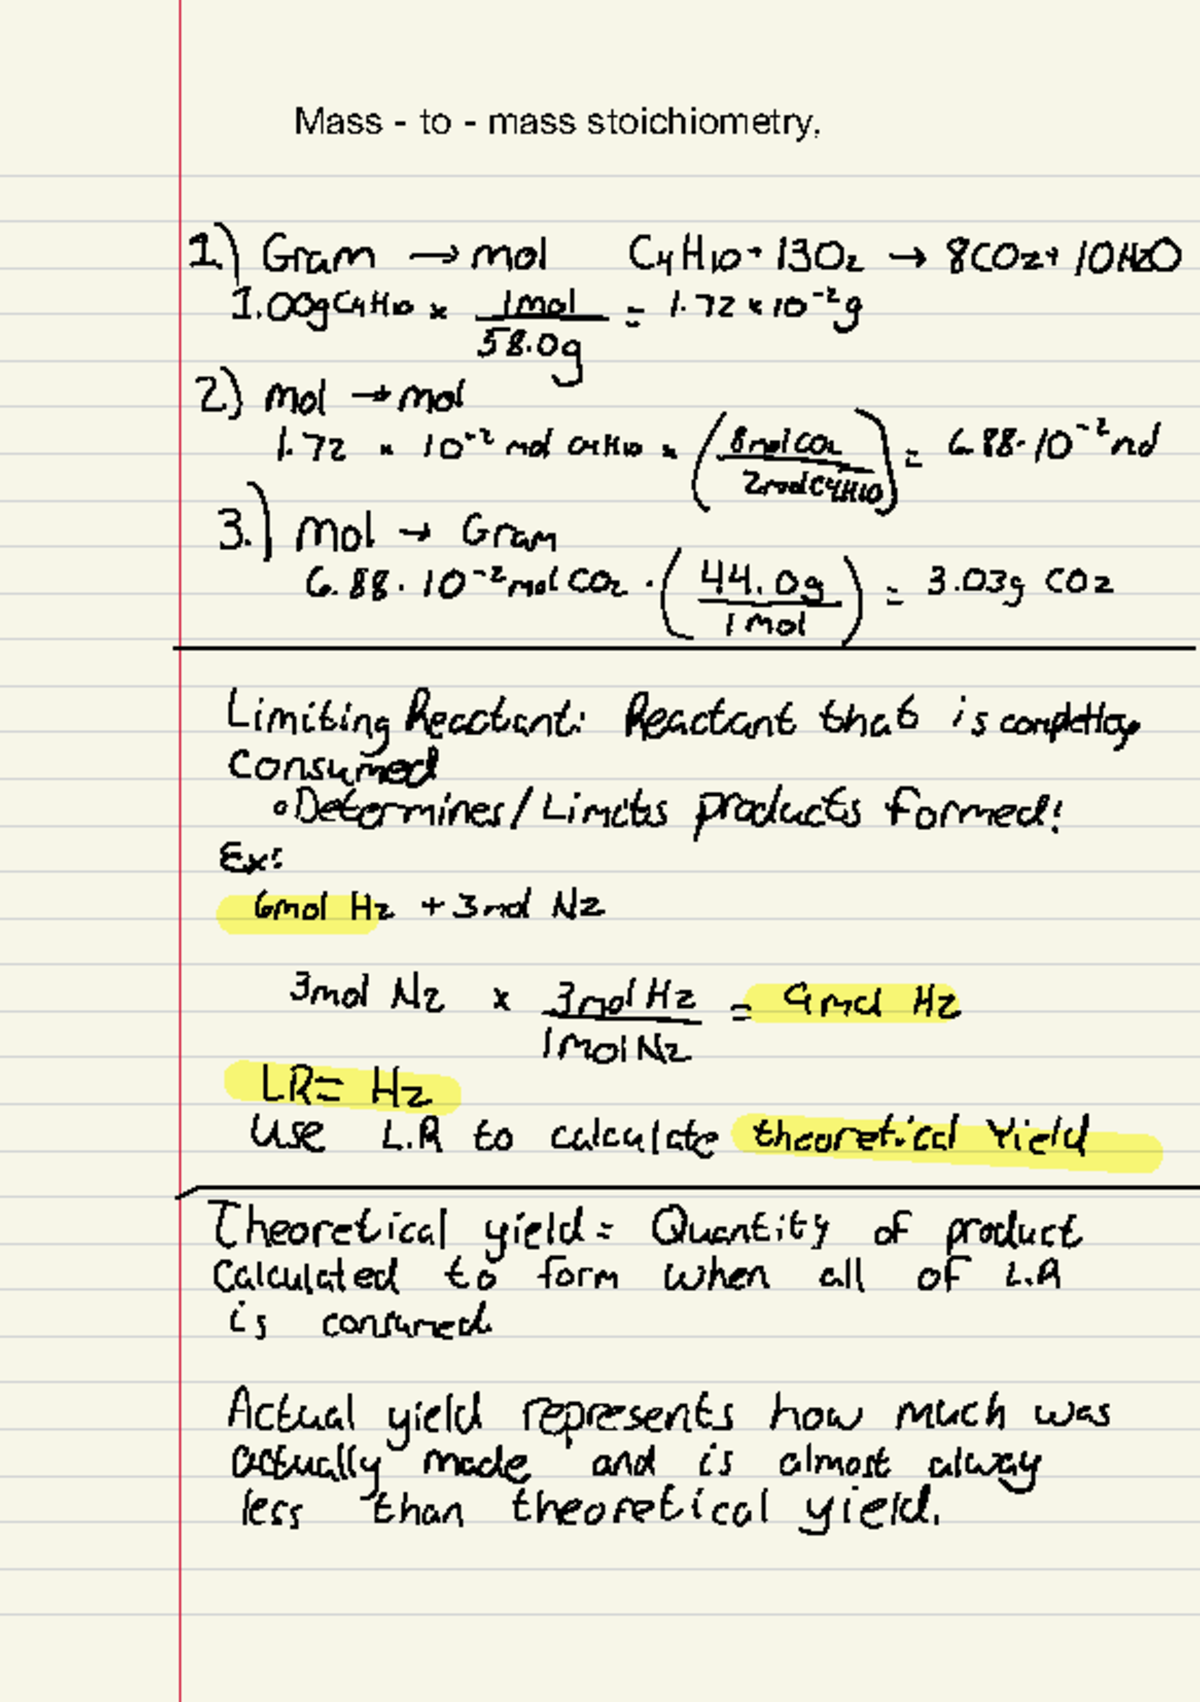 Mass - to - mass stoichiometry,
1.) Gram → mol C4H10 + 13O2 → 8CO2 + 10H2O
1.00g C4H10 × 1mol/58.0g = 1.72 × 10⁻² g
2.) mol → mol
1.72 × 10⁻² mol C4H10 × (8mol CO2/2mol C4H10) = 6.88 · 10⁻² mol
3.) Mol → Gram
6.88 · 10⁻² mol CO2 · (44.0g/1mol) = 3.03g CO2
Limiting Reactant: Reactant that is
Consumed
◦ Determines/Limits products formed!
Ex:
6mol H2 + 3mol N2
3mol N2 × 3mol H2/1mol N2 = 9mol H2
LR = H2
Use L.R to calculate theoretical Yield
Theoretical yield = Quantity of product
Calculated to form when all of L.R
is consumed.
Actual yield represents how much was
actually made and is almost alway
less than theoretical yield.